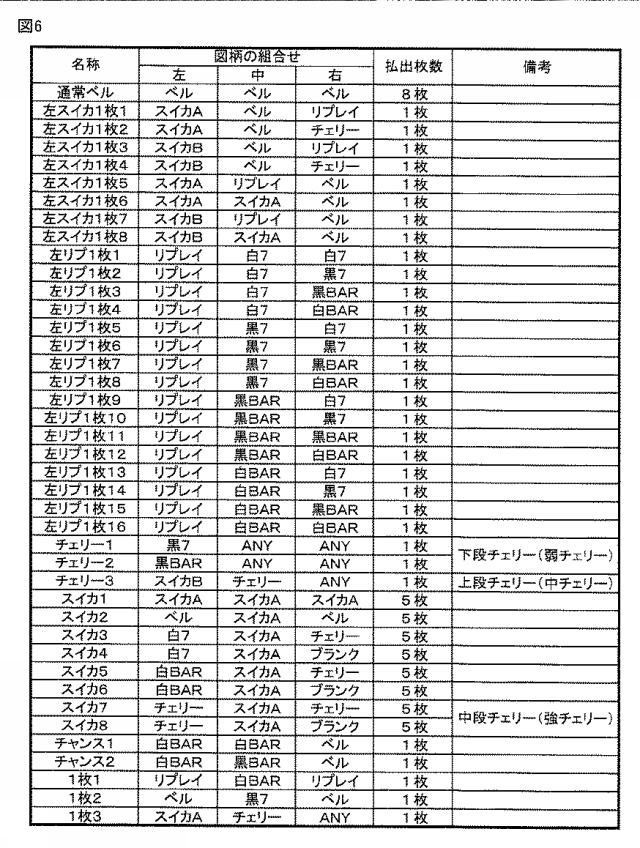 図6
名称 図柄の組合せ 払出枚数 備考
左 中 右
通常ベル ベル ベル ベル 8枚
左スイカ1枚1 スイカA ベル リプレイ 1枚
左スイカ1枚2 スイカA ベル チェリー 1枚
左スイカ1枚3 スイカB ベル リプレイ 1枚
左スイカ1枚4 スイカB ベル チェリー 1枚
左スイカ1枚5 スイカA リプレイ ベル 1枚
左スイカ1枚6 スイカA スイカA ベル 1枚
左スイカ1枚7 スイカB リプレイ ベル 1枚
左スイカ1枚8 スイカB スイカA ベル 1枚
左リプ1枚1 リプレイ 白7 白7 1枚
左リプ1枚2 リプレイ 白7 黒7 1枚
左リプ1枚3 リプレイ 白7 黒BAR 1枚
左リプ1枚4 リプレイ 白7 白BAR 1枚
左リプ1枚5 リプレイ 黒7 白7 1枚
左リプ1枚6 リプレイ 黒7 黒7 1枚
左リプ1枚7 リプレイ 黒7 黒BAR 1枚
左リプ1枚8 リプレイ 黒7 白BAR 1枚
左リプ1枚9 リプレイ 黒BAR 白7 1枚
左リプ1枚10 リプレイ 黒BAR 黒7 1枚
左リプ1枚11 リプレイ 黒BAR 黒BAR 1枚
左リプ1枚12 リプレイ 黒BAR 白BAR 1枚
左リプ1枚13 リプレイ 白BAR 白7 1枚
左リプ1枚14 リプレイ 白BAR 黒7 1枚
左リプ1枚15 リプレイ 白BAR 黒BAR 1枚
左リプ1枚16 リプレイ 白BAR 白BAR 1枚
チェリー1 黒7 ANY ANY 1枚 下段チェリー(弱チェリー)
チェリー2 黒BAR ANY ANY 1枚
チェリー3 スイカB チェリー ANY 1枚 上段チェリー(中チェリー)
スイカ1 スイカA スイカA スイカA 5枚
スイカ2 ベル スイカA ベル 5枚
スイカ3 白7 スイカA チェリー 5枚
スイカ4 白7 スイカA ブランク 5枚
スイカ5 白BAR スイカA チェリー 5枚
スイカ6 白BAR スイカA ブランク 5枚
スイカ7 チェリー スイカA チェリー 5枚 中段チェリー(強チェリー)
スイカ8 チェリー スイカA ブランク 5枚
チャンス1 白BAR 白BAR ベル 1枚
チャンス2 白BAR 黒BAR ベル 1枚
1枚1 リプレイ 白BAR リプレイ 1枚
1枚2 ベル 黒7 ベル 1枚
1枚3 スイカA チェリー ANY 1枚